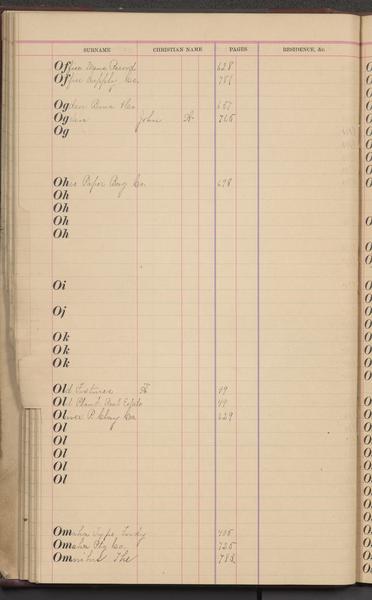 SURNAME CHRISTIAN NAME PAGES RESIDENCE, &c.
Office Mens Record 628
Office Supply Co. 751
Ogden &Co 657
Ogden John A 765
Og
Ohio Paper Bag Co. 698
Oh
Oh
Oh
Oh
Oi
Oj
Ok
Ok
Ok
Old Fixtures 49
Old Plant Real Estate 49
Oliver P. Clay Co. 629
Ol
Ol
Ol
Ol
Ol
Omaha Type Fndry 405
Omaha Ptg Co. 725
Omnibus The 783